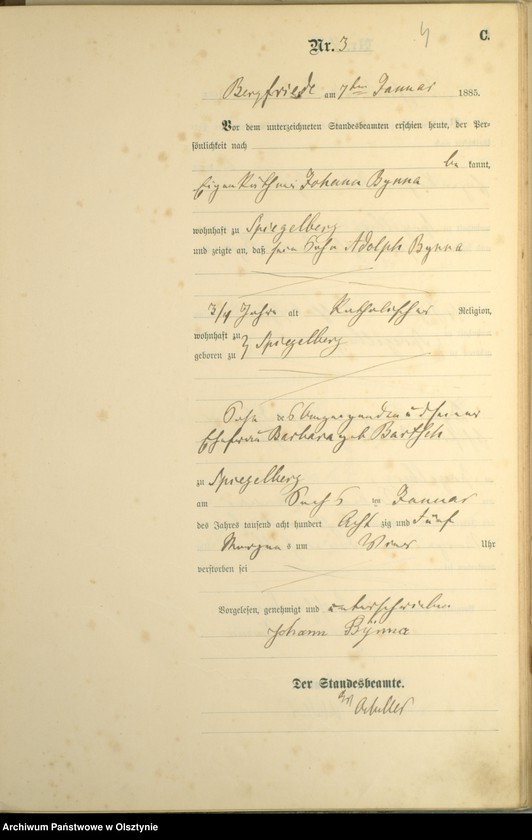 C.
Nr. 3
Bergfriede am 7ten Januar 1885.
Vor dem unterzeichneten Standesbeamten erschien heute, der Per-
sönlichkeit nach
be kannt,
Eigenkäthner Johann Bynna
wohnhaft zu Spiegelberg
und zeigte an, daß sein Sohn Adolph Bynna
3/4 Jahre alt Katholischer Religion,
wohnhaft zu
geboren zu Spiegelberg
Sohn des und seiner
Ehefrau Barbara geb Bartsch
zu Spiegelberg
am Sechs ten Januar
des Jahres tausend acht hundert Acht zig und Fünf
Morgens um Uhr
verstorben sei
Vorgelesen, genehmigt und unterschrieben
Johann Bÿnna
Der Standesbeamte.
Archiwum Państwowe w Olsztynie